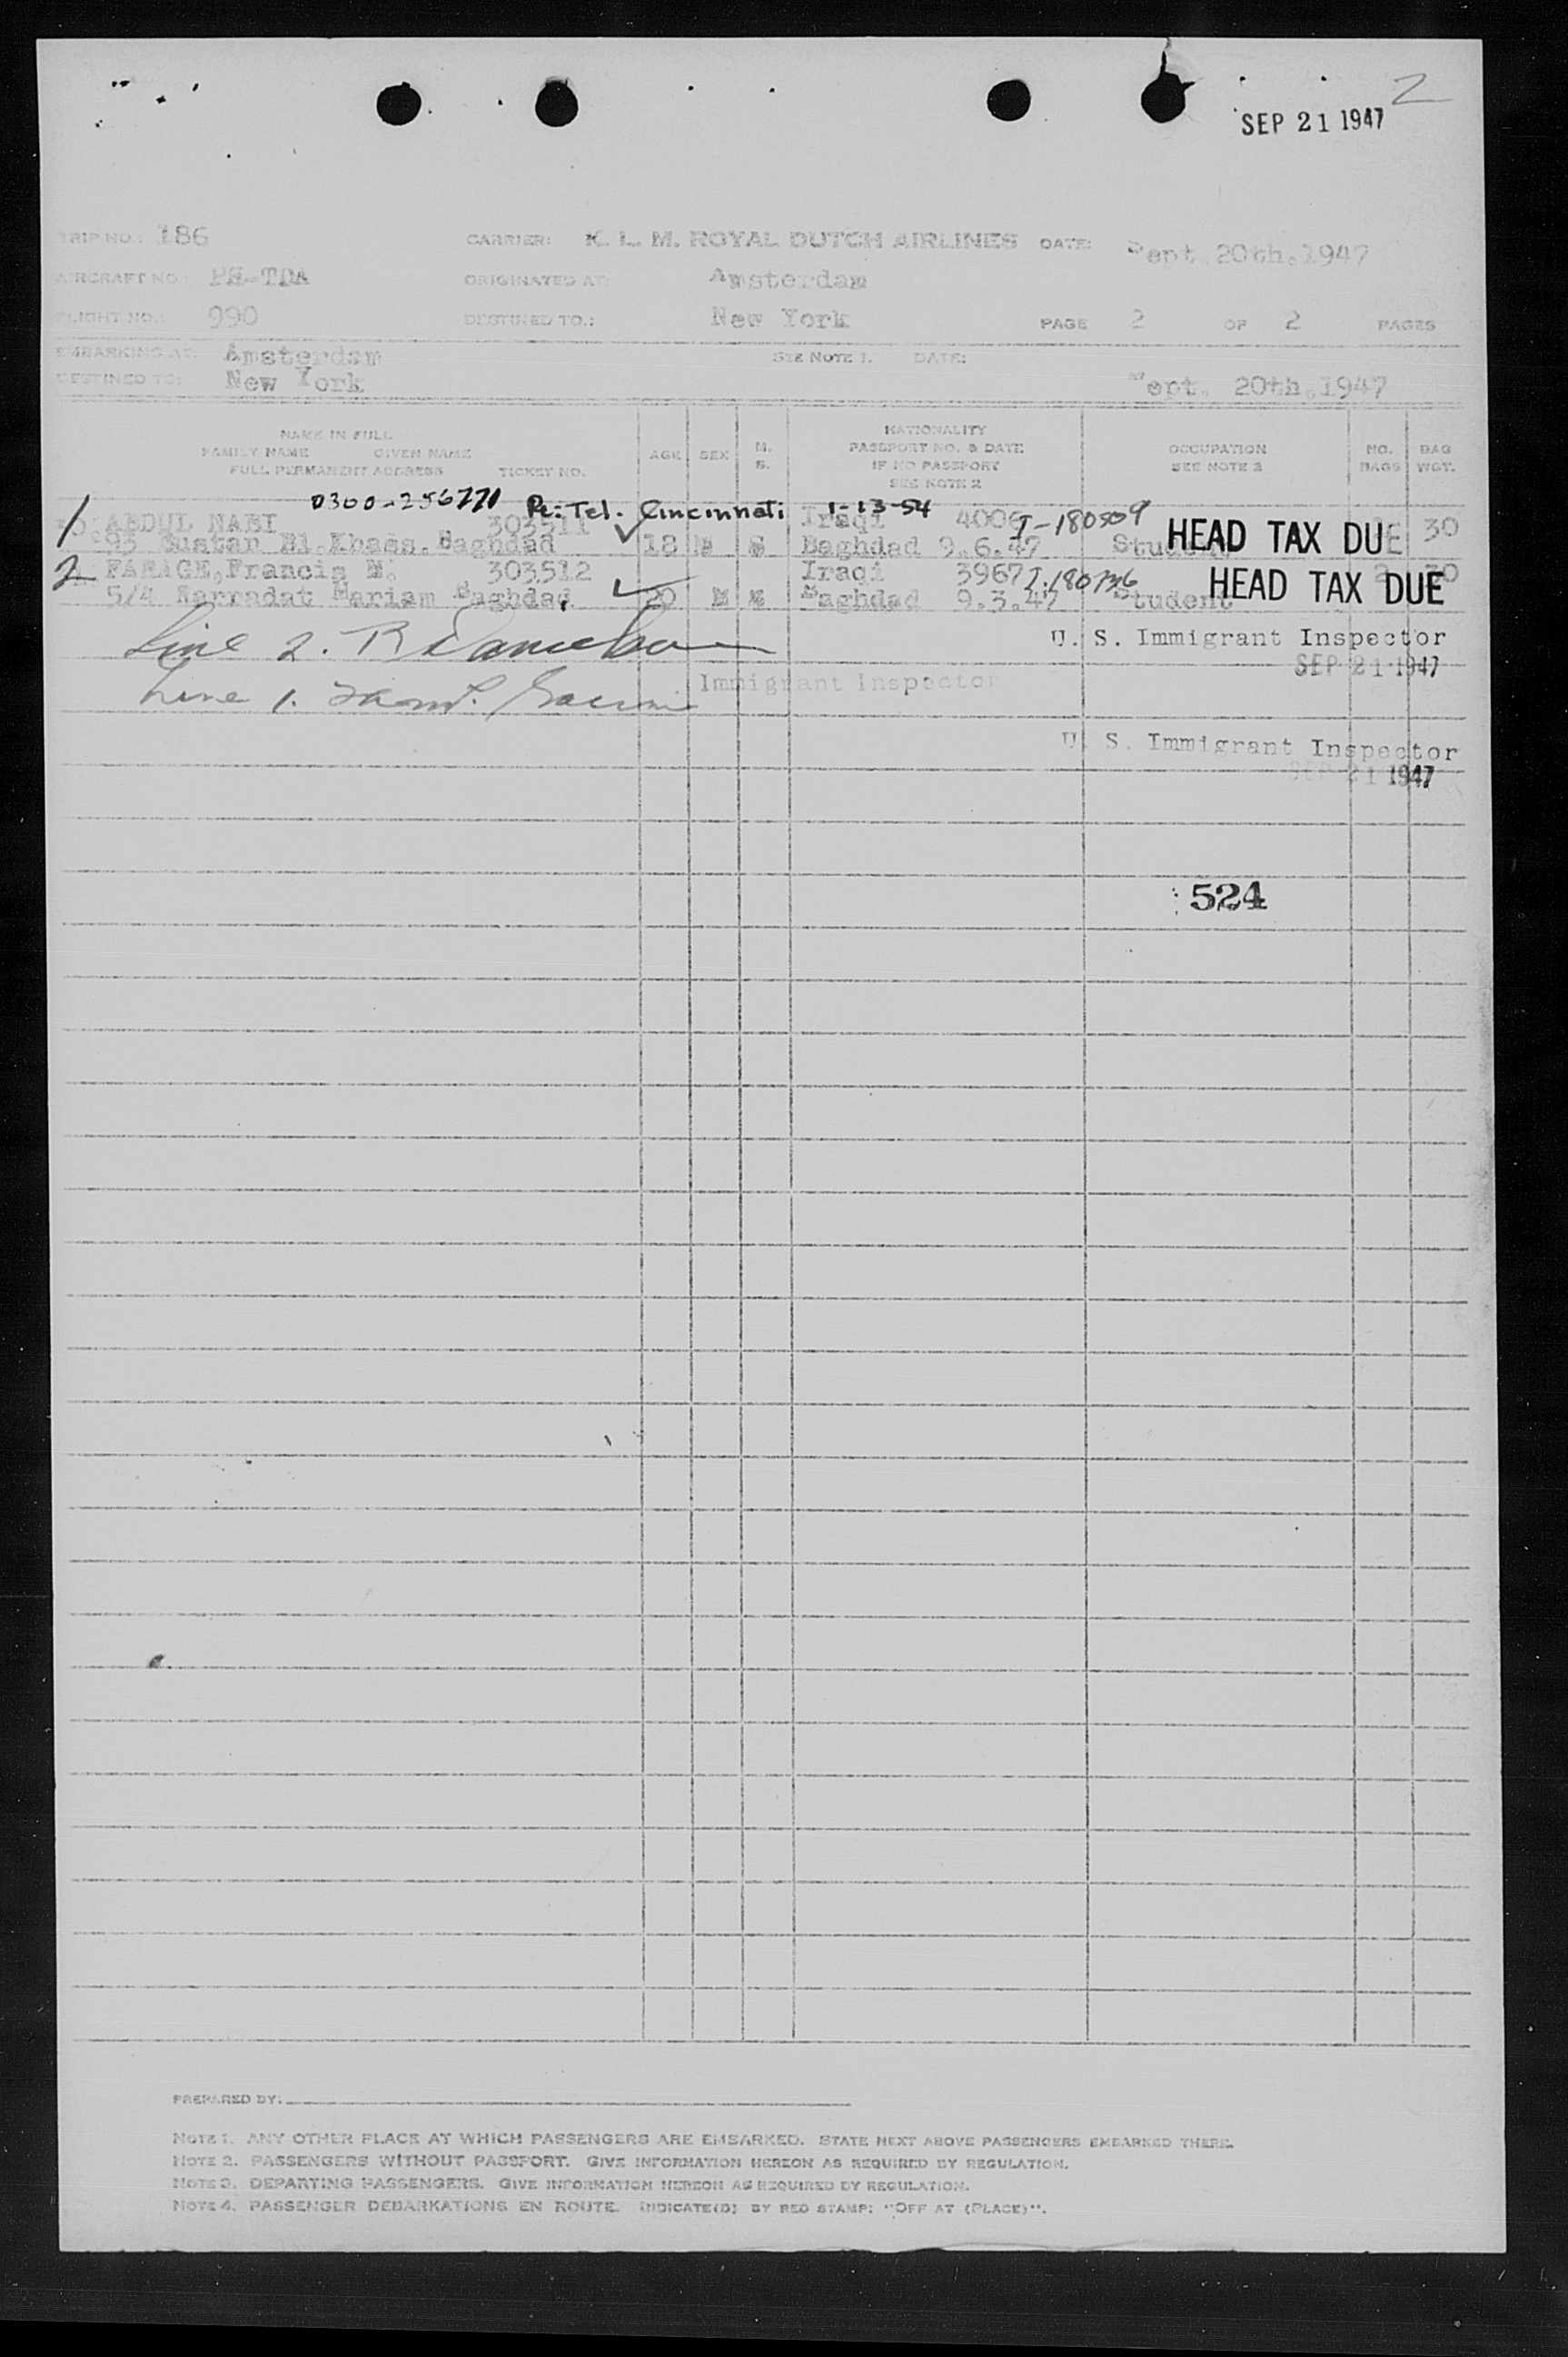 2
SEP 21 1947
TRIP NO.: 186 CARRIER: K. L. M. ROYAL DUTCH AIRLINES DATE: Sept. 20th.1947
AIRCRAFT NO.: PH-TDA ORIGINATED AT: Amsterdam
FLIGHT NO.: 990 DESTINED TO.: New York PAGE 2 OF 2 PAGES
EMBARKING AT: Amsterdam SEE NOTE 1. DATE:
DESTINED TO: New York Sept. 20th.1947
NAME IN FULL
FAMILY NAME GIVEN NAME
FULL PERMANENT ADDRESS TICKET NO.
AGE SEX M. S.
NATIONALITY
PASSPORT NO. & DATE
IF NO PASSPORT
SEE NOTE 2
OCCUPATION
SEE NOTE 3
NO. BAGS
BAG WGT.
0300-256771 Re: Tel. Cincinnati 1-13-54
1 ABDUL NABI 303511 Iraqi 4006 I-180509 HEAD TAX DUE 30
93 Bustan El Khass. Baghdad 18 M S Baghdad 9.6.47 Student
2 FARAGE,Francis M. 303512 Iraqi 3967 I-180736 HEAD TAX DUE 30
5/4 Karradat Mariam Baghdad. 20 M Baghdad 9.3.47 Student
Line 2. U. S. Immigrant Inspector
SEP 21 1947
Line 1. Immigrant Inspector
U. S. Immigrant Inspector
SEP 21 1947
524
PREPARED BY:
NOTE 1. ANY OTHER PLACE AT WHICH PASSENGERS ARE EMBARKED. STATE NEXT ABOVE PASSENGERS EMBARKED THERE.
NOTE 2. PASSENGERS WITHOUT PASSPORT. GIVE INFORMATION HEREON AS REQUIRED BY REGULATION.
NOTE 3. DEPARTING PASSENGERS. GIVE INFORMATION HEREON AS REQUIRED BY REGULATION.
NOTE 4. PASSENGER DEBARKATIONS EN ROUTE. INDICATE(D) BY RED STAMP: "OFF AT (PLACE)".